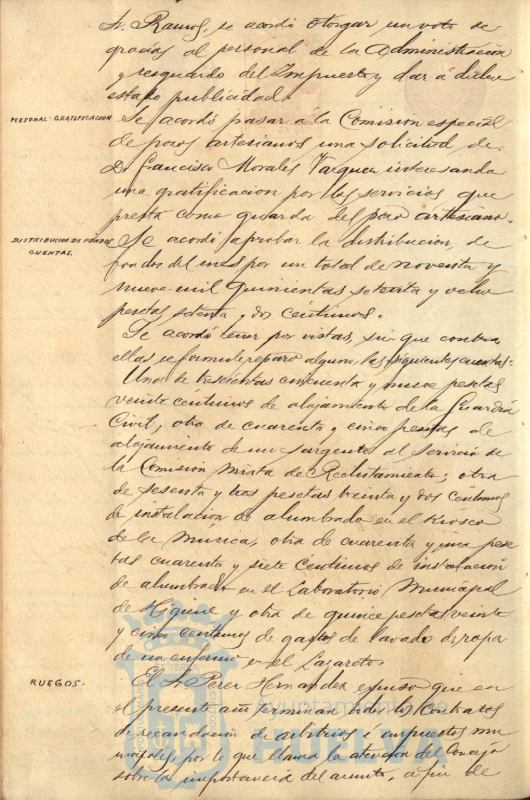 Sr. Ramos, se acordó otorgar un voto de
gracias al personal de la Administración
y resguardo del Impuesto y dar á dicho
estado publicidad.
PERSONAL: GRATIFICACION
Se acordó pasar á la Comisión especial
de pozos artesianos una solicitud de
D. Francisco Morales Vazquez interesando
una gratificacion por los servicios que
presta como guarda del pozo artesiano.
DISTRIBUCION DE FONDOS
CUENTAS.
Se acordó aprobar la distribucion de
fondos del mes por un total de noventa y
nueve mil quinientas setenta y ocho
pesetas setenta y dos céntimos.
Se acordó tener por vistas, sin que contra
ellas se formule reparo alguno, las siguientes cuentas:
Una de trescientas cincuenta y nueve pesetas
veinte centimos de alojamiento de la Guardia
Civil, otra de cuarenta y cinco pesetas de
alojamiento de un Sargento al servicio de
la Comisión Mixta de Reclutamiento; otra
de sesenta y tres pesetas treinta y dos céntimos
de instalacion de alumbrado en el Kiosco
de la Música, otra de cuarenta y una pese
tas cuarenta y siete céntimos de instalacion
de alumbrado en el Laboratorio Municipal
de Higiene y otra de quince pesetas veinte
y cinco centimos de gastos de lavado de ropa
de un enfermo en el Lazareto.
RUEGOS.
El Sr. Perez Hernandez expuso que en
el presente año terminan todos los Contratos
de recaudacion de arbitrios e impuestos mu
nicipales, por lo que llama la atencion del Concejo
sobre la importancia del asunto, a fin de
Ayuntamiento de
HUELVA